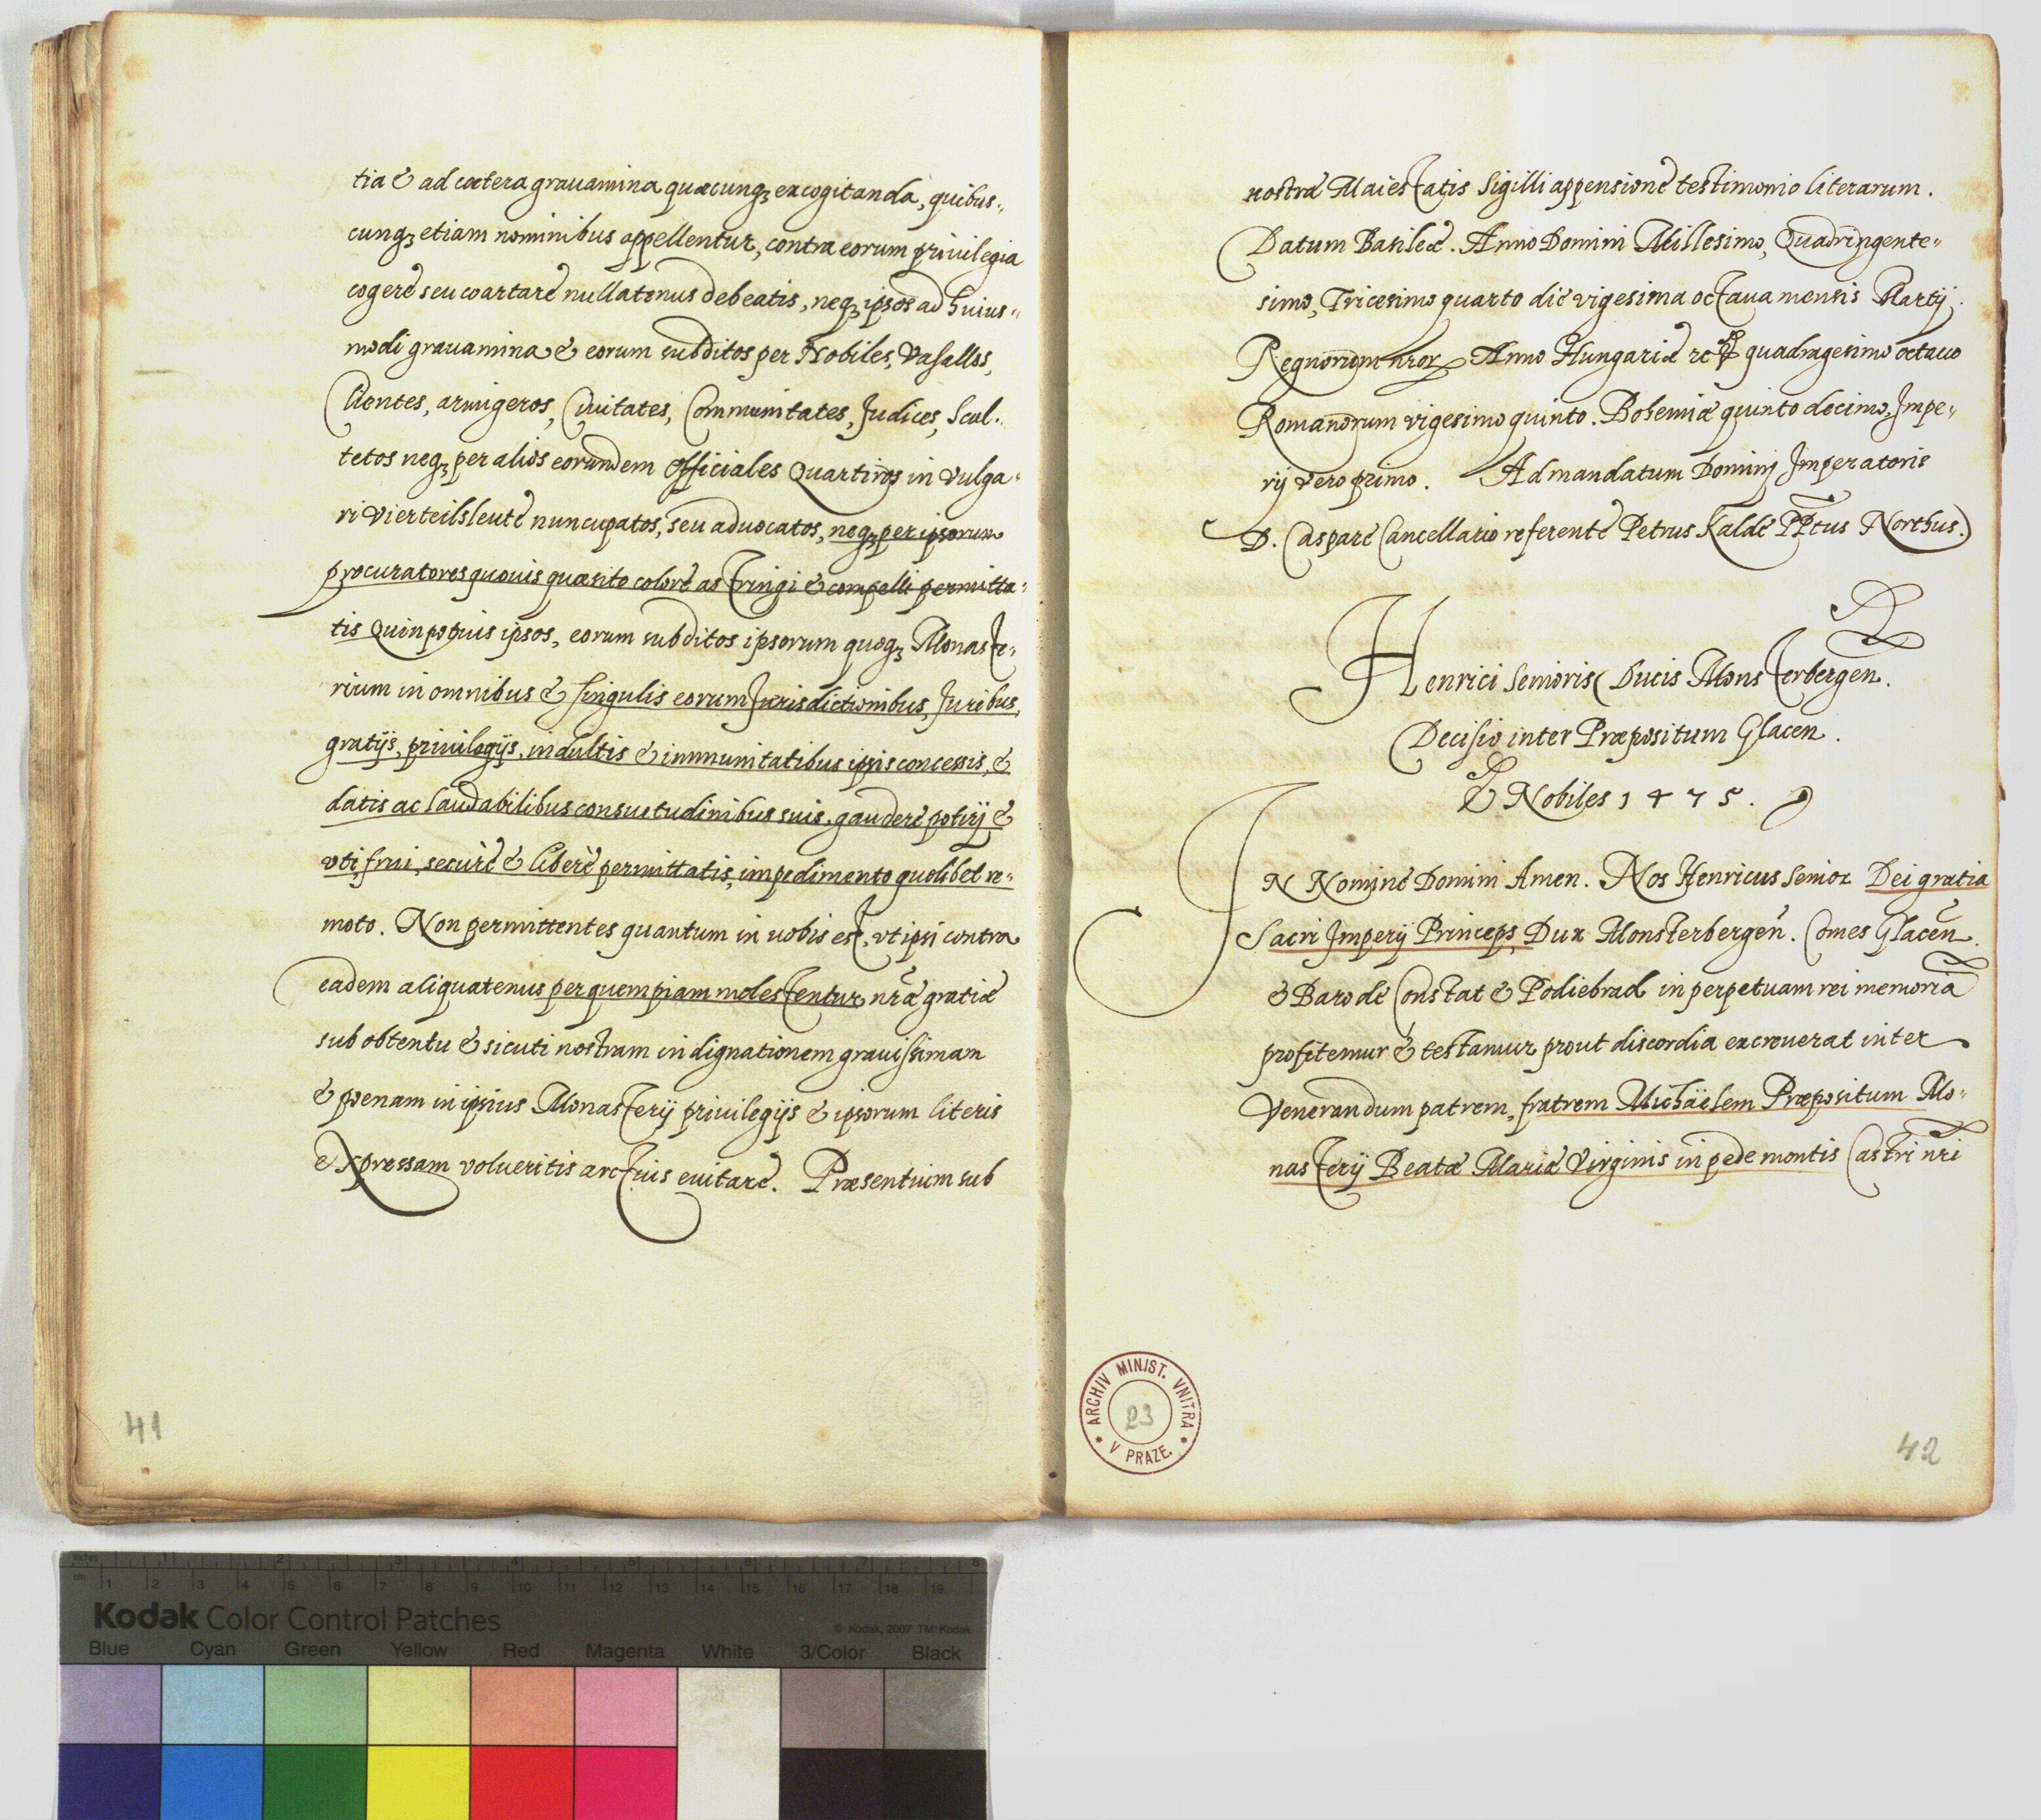 tia & ad cætera grauamina quæcunqꝫ excogitanda, quibus„
cunqꝫ etiam nominibus appellentur, contra eorum priuilegia
cogere seu coartare nullatenus debeatis, neqꝫ ipsos ad huius„
modi grauamina & eorum subditos per Nobiles, Vasallos,
Clientes, armigeros, Ciuitates, Communitates, Judices, Scul„
tetos neqꝫ per alios eorundem Officiales Quartiros in vulga„
ri Vierteilsleute nuncupatos, seu aduocatos, neqꝫ per ipsorum
procuratores quouis quæsito colore astringi & compelli permitta„
tis Quinpotius ipsos, eorum subditos ipsorum quoqꝫ Monaste„
rium in omnibus & singulis eorum Jurisdictionibus, Juribus,
gratijs, priuilegijs, indultis & immunitatibus ipsis concessis, &
datis ac laudabilibus consuetudinibus suis, gaudere potirj &
vti, frui, securè & liberè permittatis, impedimento quolibet re„
moto. Non permittentes quantum in uobis est, vt ipsi contra
eadem aliquatenus per quempiam molestentur nr̃æ gratiæ
sub obtentu & sicuti nostram indignationem grauissimam
& poenam in ipsius Monasterij priuilegijs & ipsorum literis
expressam volueritis arctius euitare. Præsentium sub
41
nostræ Maiestatis Sigilli appensione testimonio literarum.
Datum Basileæ. Anno Domini Millesimo, Quadringente„
simo, Tricesimo quarto die vigesima octaua mensis Martij.
Regnorum nror Anno Hungariæ rc quadragesimo octauo
Romanorum vigesimo quinto. Bohemiæ quinto decimo, Impe„
rij vero primo. Ad mandatum Dominj Imperatoris
D. Caspare Cancellario referente Petrus Kalde PPtus Northus.
Henrici Senioris Ducis Monsterbergen̄.
Decisio inter Præpositum Glacen.
& Nobiles 1475.
IN Nomine Domini Amen. Nos Henricus Senior Dei gratia
Sacri Imperij Princeps, Dux Monsterbergen̄. Comes Glacen̄.
& Baro de Constat & Podiebrad in perpetuam rei memoriã
profitemur & testamur prout discordia excreuerat inter
Venerandum patrem, fratrem Michäelem Præpositum Mo„
nasterij Beatæ Mariæ Virginis in pede montis Castri nr̃i
ARCHIV MINIST. VNITRA
23
* V PRAZE. *
42
inches
cm 1 2 3 4 5 6 7 8 9 10 11 12 13 14 15 16 17 18 19
Kodak Color Control Patches
© Kodak, 2007 TM: Kodak
Blue Cyan Green Yellow Red Magenta White 3/Color Black